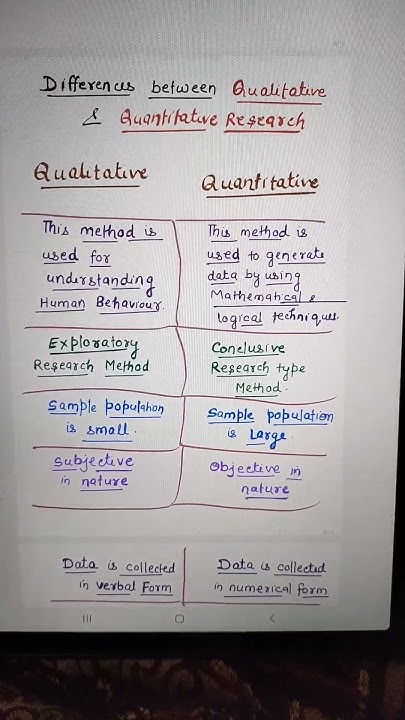 Differences between Qualitative
& Quantitative Research
Qualitative
Quantitative
This method is
used for
understanding
Human Behaviour.
This method is
used to generate
data by using
Mathematical &
logical techniques.
Exploratory
Research Method
Conclusive
Research type
Method.
Sample population
is small.
Sample population
is Large.
Subjective
in nature
Objective in
nature
Data is collected
in verbal Form
Data is collected
in numerical form